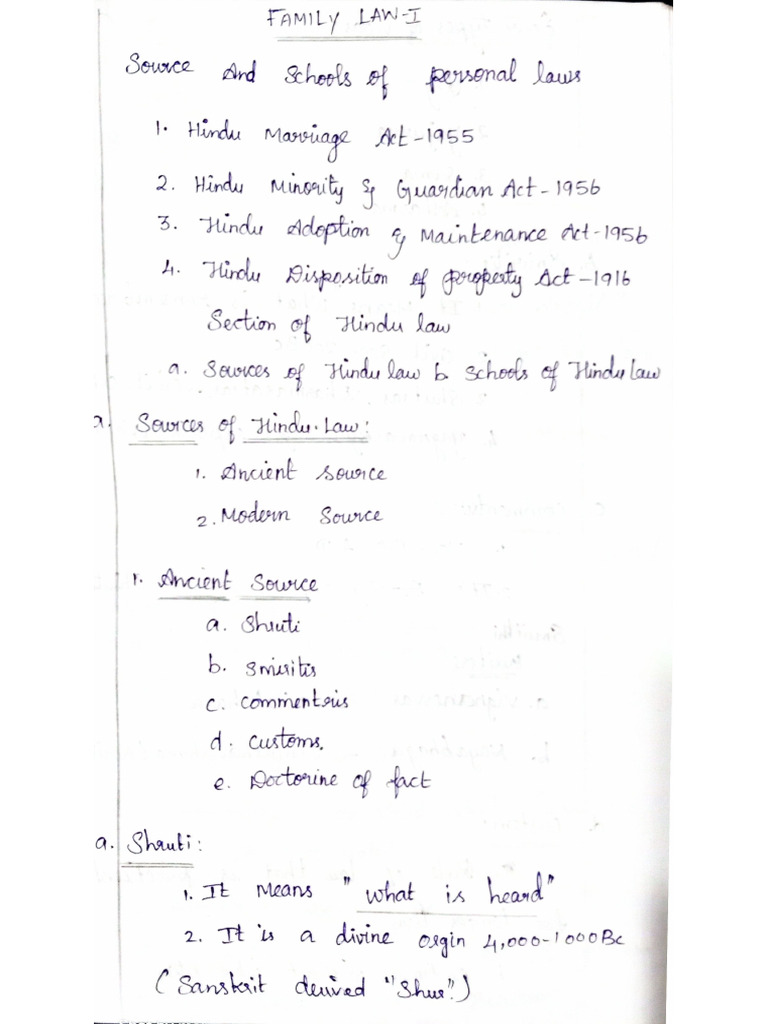 FAMILY LAW-I
Source And Schools of personal laws
1. Hindu Marriage Act-1955
2. Hindu Minority & Guardian Act-1956
3. Hindu Adoption & Maintenance Act-1956
4. Hindu Disposition of property Act-1916
Section of Hindu law
a. Sources of Hindu law b. Schools of Hindu Law
a. Sources of Hindu.Law:
1. Ancient source
2. Modern Source
1. Ancient Source
a. Shruti
b. Smiritis
c. commentris
d. customs.
e. Doctorine of fact
a. Shruti:
1. It Means "what is heard"
2. It is a divine orgin 4,000-1000Bc
(Sanskrit derived "Shur")